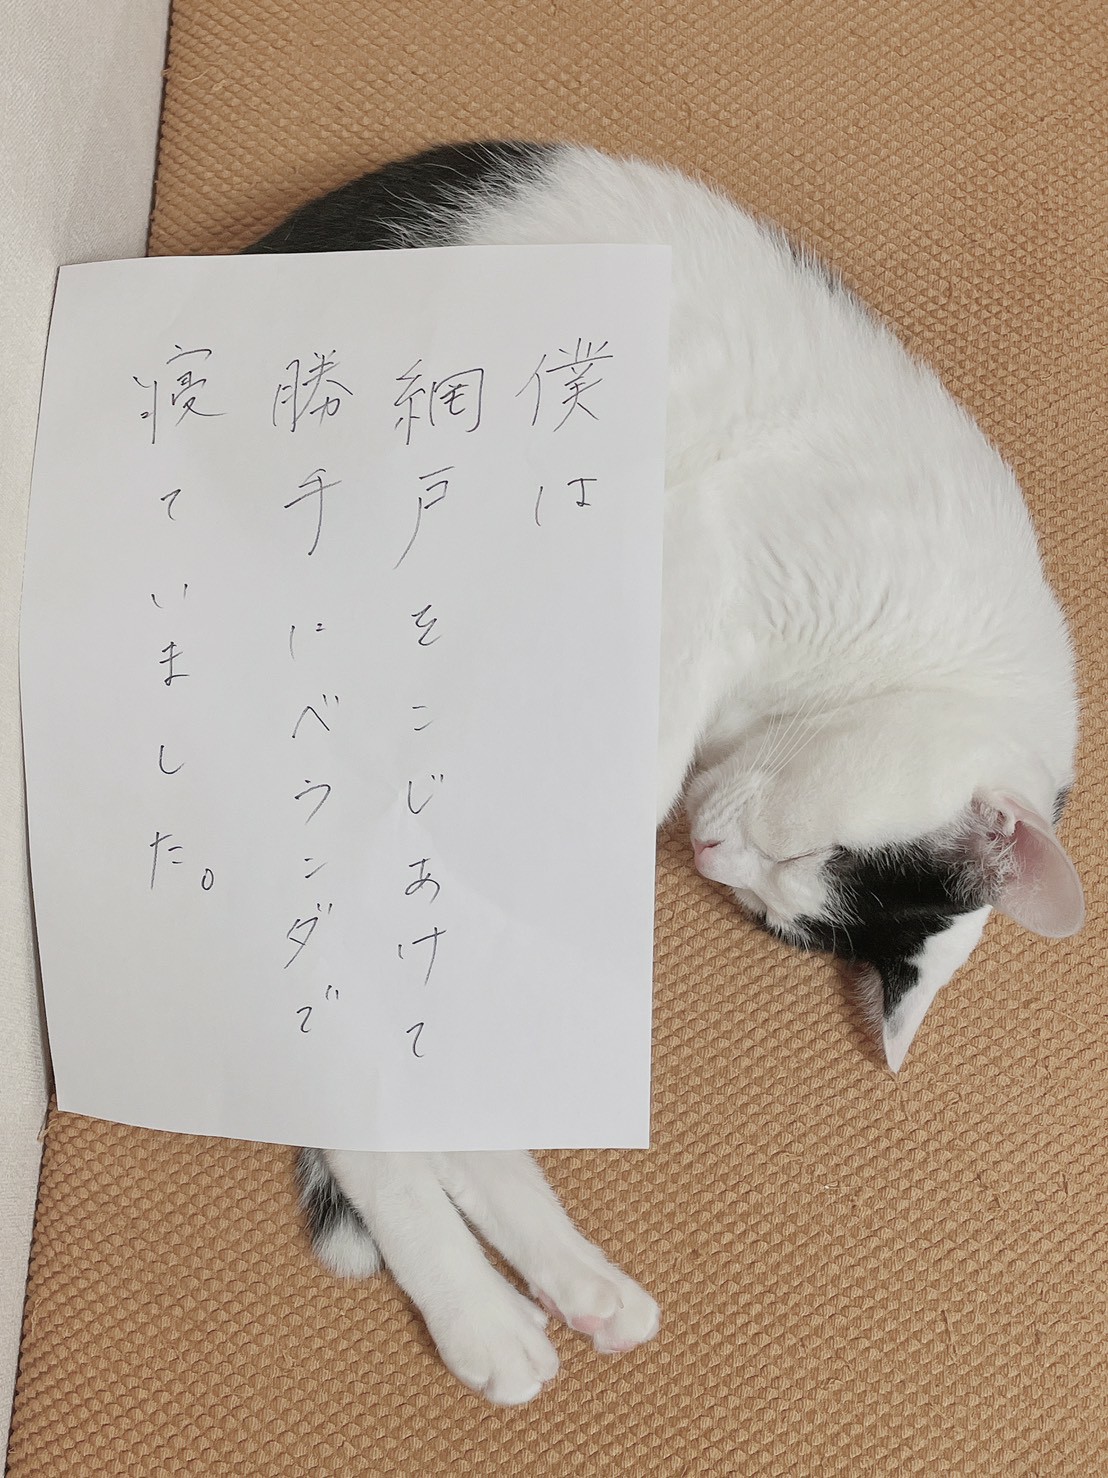 僕は
網戸をこじあけて
勝手にベランダで
寝ていました。